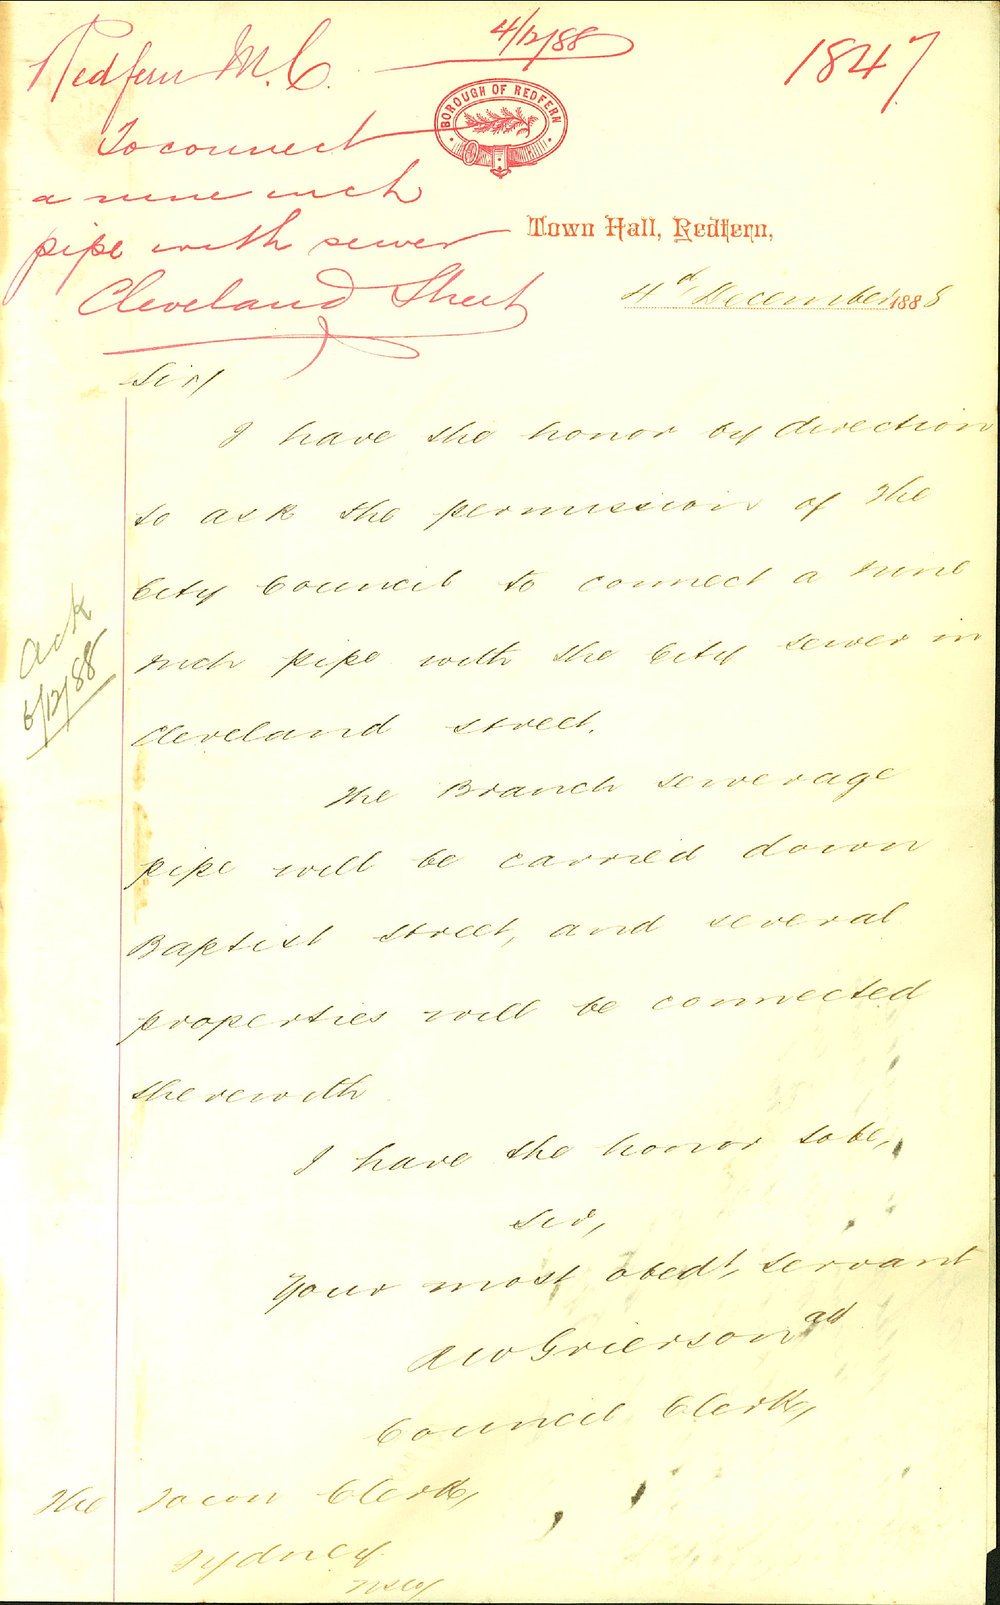 Redfern M.C. 4/12/88
1847
BOROUGH OF REDFERN
To connect
a nine inch
pipe with sewer
Cleveland Street
Town Hall, Redfern,
4th December 1888
Sir,
I have the honor by direction
to ask the permission of the
City Council to connect a nine
inch pipe with the City sewer in
Cleveland street.
Ack
6/12/88
The Branch sewerage
pipe will be carried down
Baptist street, and several
properties will be connected
therewith
I have the honor to be,
Sir,
Your most obedt, servant
A W Grierson
Council Clerk,
The Town Clerk,
Sydney